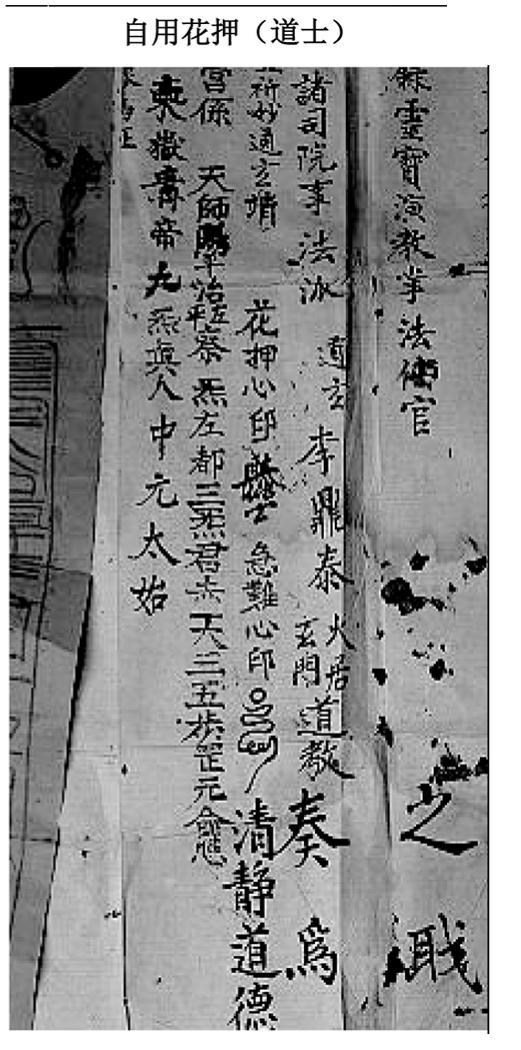 自用花押（道士）
籙靈寶演教掌法仙官
之職
諸司院事法派 道玄 李鼎泰 火居 玄門 道教 奏為
祈妙通玄靖 花押心印 急難心印 清靜道德
宮係 天師 平治 祭炁左都三炁君夫天三五步罡元命應
東嶽青帝九炁真人中元太始